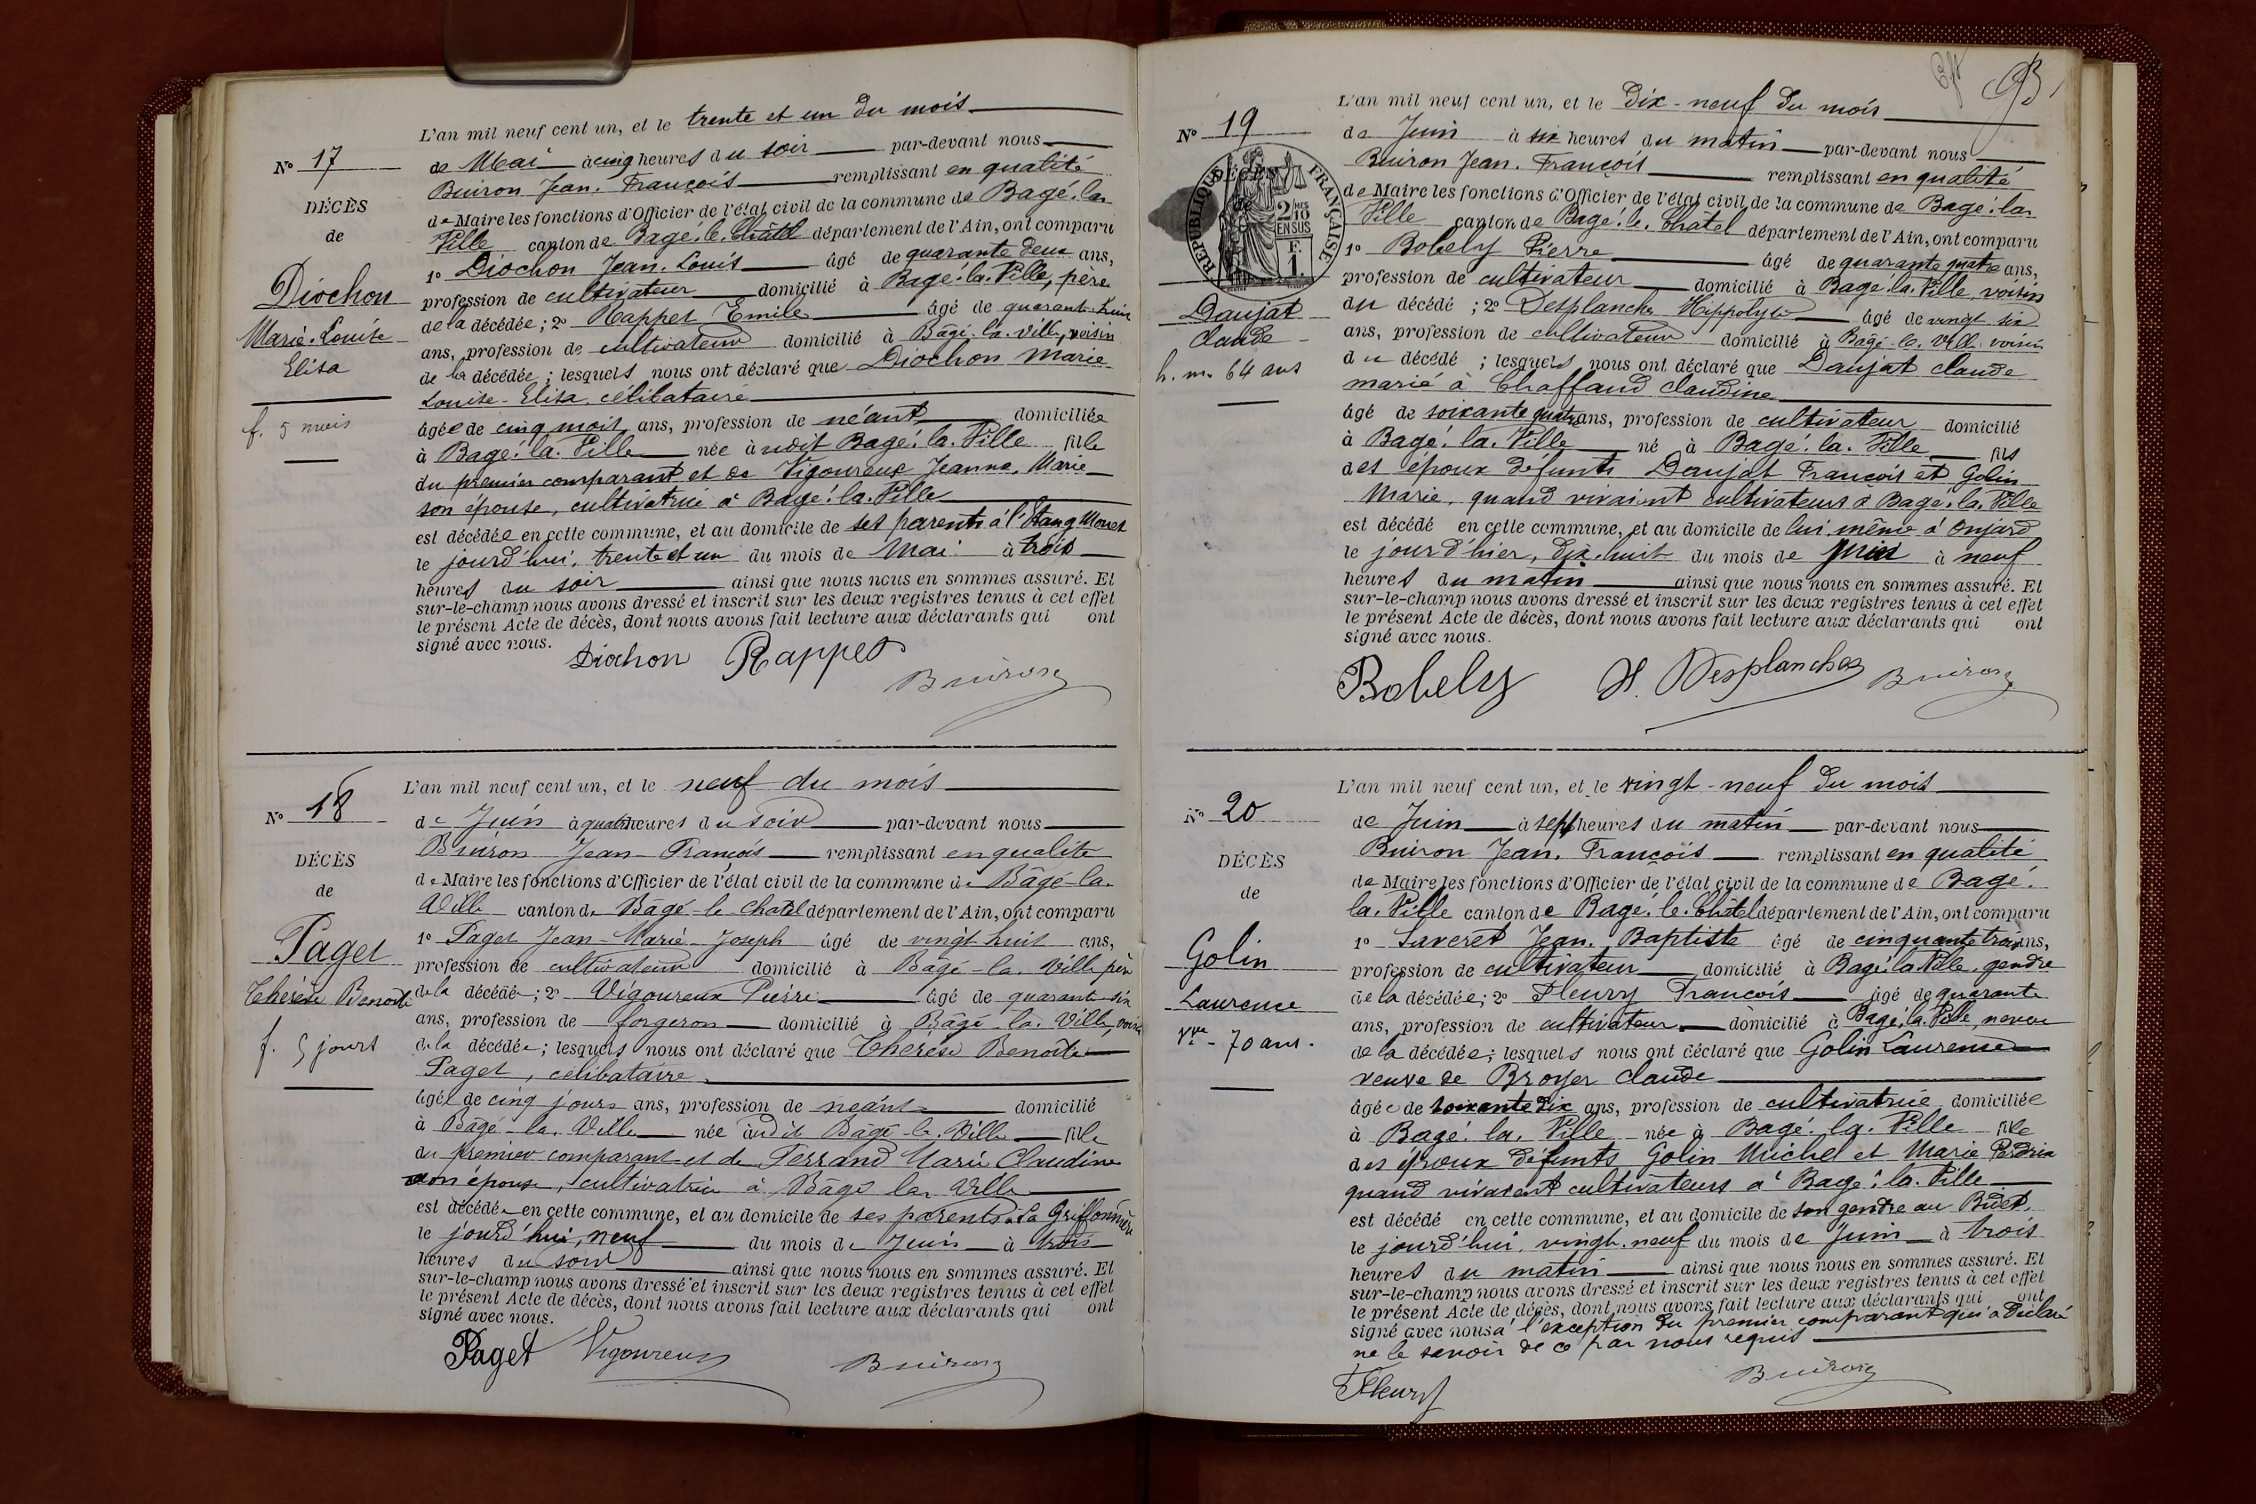 L'an mil neuf cent un, et le trente et un du mois
No 17
de Mai à cinq heures du soir par-devant nous
Buiron Jean. François remplissant en qualité
DÉCÈS
de Maire les fonctions d'Officier de l'état civil de la commune de Bagé. la.
de
Ville canton de Bagé. le. Châtel département de l'Ain, ont comparu
1o Diochon Jean. Louis âgé de quarante deux ans,
Diochon
profession de cultivateur domicilié à Bagé. la. Ville, père
Marie. Louise
de la décédée; 2o Rappet Emile âgé de quarant
Elisa
ans, profession de cultivateur domicilié à Bâgé. la. ville, voisin
de la décédée; lesquels nous ont déclaré que Diochon Marie
Louise-Elisa, célibataire
f. 5 mois
âgée de cinq mois ans, profession de néant domiciliée
à Bagé. la. Ville née à udit Bagé. la. Ville fille
du premier comparant et de Vigoureux Jeanne. Marie
son épouse, cultivatrice à Bagé. la. Ville
est décédée en cette commune, et au domicile de ses parents à l'Etang
le jourd'hui, trente et un du mois de Mai à trois
heures du soir ainsi que nous nous en sommes assuré. Et
sur-le-champ nous avons dressé et inscrit sur les deux registres tenus à cet effet
le présent Acte de décès, dont nous avons fait lecture aux déclarants qui ont
signé avec nous.
Diochon Rappet
Buiron
L'an mil neuf cent un, et le neuf du mois
No 18
de Juin à quatre heures du soir par-devant nous
Buiron Jean-François remplissant en qualité
DÉCÈS
de Maire les fonctions d'Officier de l'état civil de la commune de Bâgé-la.
de
Ville canton de Bâgé-le Chatel département de l'Ain, ont comparu
Paget
1o Paget Jean-Marie-Joseph âgé de vingt huit ans,
profession de cultivateur domicilié à Bâgé-la. Ville père
Thérèse Benoite
de la décédée; 2o Vigoureux Pierre âgé de quarant six
ans, profession de forgeron domicilié à Bâgé-la. Ville, voisin
f. 5 jours
de la décédée; lesquels nous ont déclaré que Thérèse Benoite
Paget, célibataire.
âgée de cinq jours ans, profession de néant domicilié
à Bâgé-la. Ville née àudit Bâgé-la. Ville fille
du premier comparant et de Ferrand Marie Claudine
son épouse, cultivatrice à Bâgé la. Ville
est décédée en cette commune, et au domicile de ses parents à La Griffonnière
le jourd'hui, neuf du mois de Juin à trois
heures du soir ainsi que nous nous en sommes assuré. Et
sur-le-champ nous avons dressé et inscrit sur les deux registres tenus à cet effet
le présent Acte de décès, dont nous avons fait lecture aux déclarants qui ont
signé avec nous.
Paget Vigoureux Buiron
93
L'an mil neuf cent un, et le dix-neuf du mois
No 19
de Juin à six heures du matin par-devant nous
Buiron Jean. François remplissant en qualité
DÉCÈS
de Maire les fonctions d'Officier de l'état civil de la commune de Bagé. la.
de
Ville canton de Bagé. le. Châtel département de l'Ain, ont comparu
RÉPUBLIQUE FRANÇAISE
2/10 EN SUS
F. 1.
1o Bobely Pierre âgé de quarante quatre ans,
profession de cultivateur domicilié à Bagé. la. Ville, voisin
Daujat
du décédé; 2o Desplanches Hippolyte âgé de vingt six
Claude
ans, profession de cultivateur domicilié à Bagé-la. Ville voisin
h. m. 64 ans
du décédé; lesquels nous ont déclaré que Daujat Claude
marié à Chaffaud Claudine
âgé de soixante quatre ans, profession de cultivateur domicilié
à Bagé. la. Ville né à Bagé. la. Ville fils
des époux défunts Daujat François et Golin
Marie, quand vivaient cultivateurs à Bagé. la. Ville
est décédé en cette commune, et au domicile de lui même à Onjard
le jourd'hier, dix. huit du mois de juin à neuf
heures du matin ainsi que nous nous en sommes assuré. Et
sur-le-champ nous avons dressé et inscrit sur les deux registres tenus à cet effet
le présent Acte de décès, dont nous avons fait lecture aux déclarants qui ont
signé avec nous.
Bobely H. Desplanches Buiron
L'an mil neuf cent un, et le vingt-neuf du mois
No 20
de Juin à sept heures du matin par-devant nous
Buiron Jean. François remplissant en qualité
DÉCÈS
de Maire les fonctions d'Officier de l'état civil de la commune de Bagé.
de
la. Ville canton de Bagé. le. Châtel département de l'Ain, ont comparu
Golin
1o Saveret Jean. Baptiste âgé de cinquante trois ans,
profession de cultivateur domicilié à Bagé. la Ville, gendre
Laurence
de la décédée; 2o Fleury François âgé de quarante
Vve - 70 ans.
ans, profession de cultivateur domicilié à Bagé. la. Ville, neveu
de la décédée; lesquels nous ont déclaré que Golin Laurence
veuve de Broyer Claude
âgée de soixante dix ans, profession de cultivatrice domiciliée
à Bagé. la. Ville née à Bagé. la. Ville fille
des époux défunts Golin Michel et Marie Perdrix
quand vivaient cultivateurs à Bagé. la. Ville
est décédé en cette commune, et au domicile de son gendre au Bidet,
le jourd'hui, vingt. neuf du mois de Juin à trois
heures du matin ainsi que nous nous en sommes assuré. Et
sur-le-champ nous avons dressé et inscrit sur les deux registres tenus à cet effet
le présent Acte de décès, dont nous avons fait lecture aux déclarants qui ont
signé avec nous à l'exception du premier comparant qui a déclaré
ne le savoir de ce par nous requis
Fleury Buiron